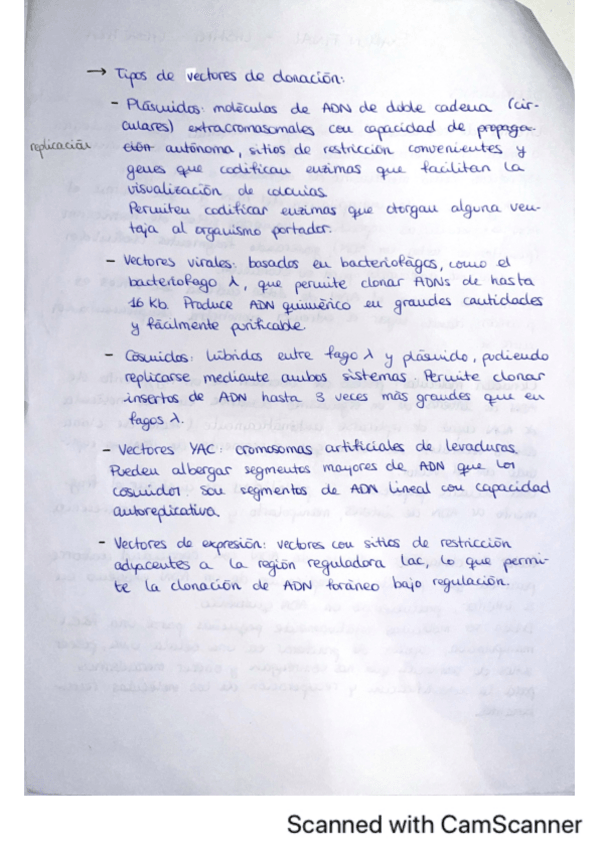 → Tipos de vectores de clonación:
- Plásmidos: moléculas de ADN de doble cadena (cir-
culares) extracromasomales con capacidad de propaga-
replicación
ción autónoma, sitios de restricción convenientes y
genes que codifican enzimas que facilitan la
visualización de colonias.
Permiten codificar enzimas que otorgan alguna ven-
taja al organismo portador.
- Vectores virales: basados en bacteriofágos, como el
bacteriofago λ, que permite clonar ADNs de hasta
16 Kb. Produce ADN quimérico en grandes cantidades
y fácilmente purificable.
- Cósmidos: híbridos entre fago λ y plásmido, pudiendo
replicarse mediante ambos sistemas. Permite clonar
insertos de ADN hasta 3 veces más grandes que en
fagos λ.
- Vectores YAC: cromosomas artificiales de levaduras.
Pueden albergar segmentos mayores de ADN que los
cósmidos. son segmentos de ADN lineal con capacidad
autoreplicativa.
- Vectores de expresión: vectores con sitios de restricción
adyacentes a la región reguladora lac, lo que permi-
te la clonación de ADN foráneo bajo regulación.
Scanned with CamScanner